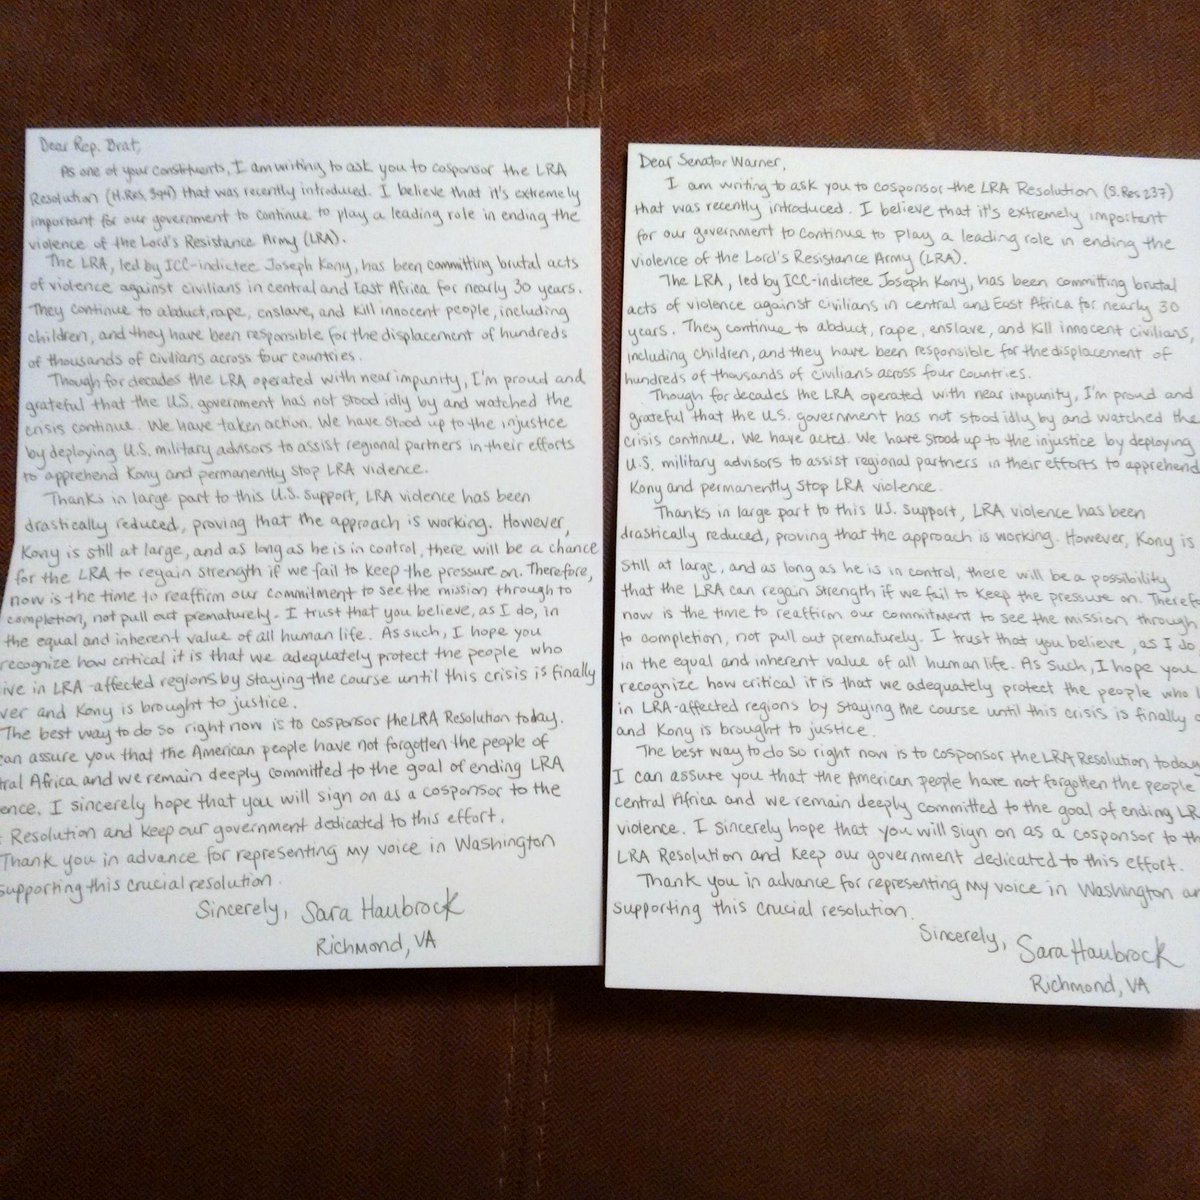 Dear Rep. Brat,
As one of your constituents, I am writing to ask you to cosponsor the LRA
Resolution (H.Res. 394) that was recently introduced. I believe that it's extremely
important for our government to continue to play a leading role in ending the
violence of the Lord's Resistance Army (LRA).
The LRA, led by ICC-indictee Joseph Kony, has been committing brutal acts
of violence against civilians in central and East Africa for nearly 30 years.
They continue to abduct, rape, enslave, and kill innocent people, including
children, and they have been responsible for the displacement of hundreds
of thousands of civilians across four countries.
Though for decades the LRA operated with near impunity, I'm proud and
grateful that the U.S. government has not stood idly by and watched the
crisis continue. We have taken action. We have stood up to the injustice
by deploying U.S. military advisors to assist regional partners in their efforts
to apprehend Kony and permanently stop LRA violence.
Thanks in large part to this U.S. support, LRA violence has been
drastically reduced, proving that the approach is working. However,
Kony is still at large, and as long as he is in control, there will be a chance
for the LRA to regain strength if we fail to keep the pressure on. Therefore,
now is the time to reaffirm our commitment to see the mission through to
completion, not pull out prematurely. I trust that you believe, as I do, in
the equal and inherent value of all human life. As such, I hope you
recognize how critical it is that we adequately protect the people who
ive in LRA-affected regions by staying the course until this crisis is finally
ver and Kony is brought to justice.
The best way to do so right now is to cosponsor the LRA Resolution today.
an assure you that the American people have not forgotten the people of
tral Africa and we remain deeply committed to the goal of ending LRA
ence. I sincerely hope that you will sign on as a cosponsor to the
Resolution and keep our government dedicated to this effort.
Thank you in advance for representing my voice in Washington
supporting this crucial resolution.
Sincerely, Sara Haubrock
Richmond, VA
Dear Senator Warner,
I am writing to ask you to cosponsor the LRA Resolution (S.Res 237)
that was recently introduced. I believe that it's extremely important
for our government to continue to play a leading role in ending the
violence of the Lord's Resistance Army (LRA).
The LRA, led by ICC-indictee Joseph Kony, has been committing brutal
acts of violence against civilians in central and East Africa for nearly 30
years. They continue to abduct, rape, enslave, and kill innocent civilians,
including children, and they have been responsible for the displacement of
hundreds of thousands of civilians across four countries.
Though for decades the LRA operated with near impunity, I'm proud and
grateful that the U.S. government has not stood idly by and watched the
crisis continue. We have acted. We have stood up to the injustice by deploying
U.S. military advisors to assist regional partners in their efforts to apprehend
Kony and permanently stop LRA violence.
Thanks in large part to this U.S. support, LRA violence has been
drastically reduced, proving that the approach is working. However, Kony is
still at large, and as long as he is in control, there will be a possibility
that the LRA can regain strength if we fail to keep the pressure on. Therefo
now is the time to reaffirm our commitment to see the mission through
to completion, not pull out prematurely. I trust that you believe, as I do,
in the equal and inherent value of all human life. As such, I hope you
recognize how critical it is that we adequately protect the people who l
in LRA-affected regions by staying the course until this crisis is finally o
and Kony is brought to justice.
The best way to do so right now is to cosponsor the LRA Resolution today
I can assure you that the American people have not forgotten the people
central Africa and we remain deeply committed to the goal of ending LR
violence. I sincerely hope that you will sign on as a cosponsor to th
LRA Resolution and keep our government dedicated to this effort.
Thank you in advance for representing my voice in Washington an
supporting this crucial resolution.
Sincerely, Sara Haubrock
Richmond, VA